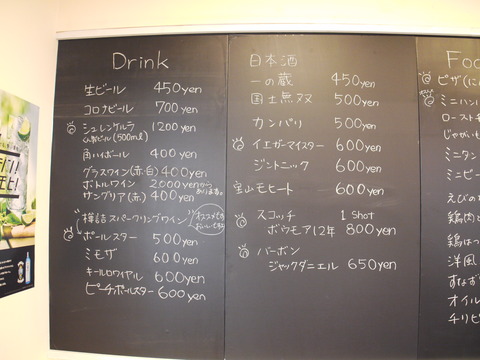 Drink
生ビール 450yen
コロナビール 700yen
シュレンケルラ 1200yen
(500ml)
角ハイボール 400yen
グラスワイン(赤・白) 400yen
ボトルワイン 2000yenから
あります。
サングリア(赤) 400yen
樽詰スパークリングワイン
オススメ
ポールスター 500yen
ミモザ 600yen
キールロワイヤル 600yen
ピーチポールスター 600yen
日本酒
一の蔵 450yen
国士無双 500yen
カンパリ 500yen
イエガーマイスター 600yen
ジントニック 600yen
宝山モヒート 600yen
スコッチ 1 Shot
ボウモア12年 800yen
バーボン
ジャックダニエル 650yen
Foo
ピザ(
ミニハン
ロースト
じゃがいも
ミニタン
ミニピー
えびの
鶏肉と
鶏はっ
洋風
すなず
オイル
チリビ